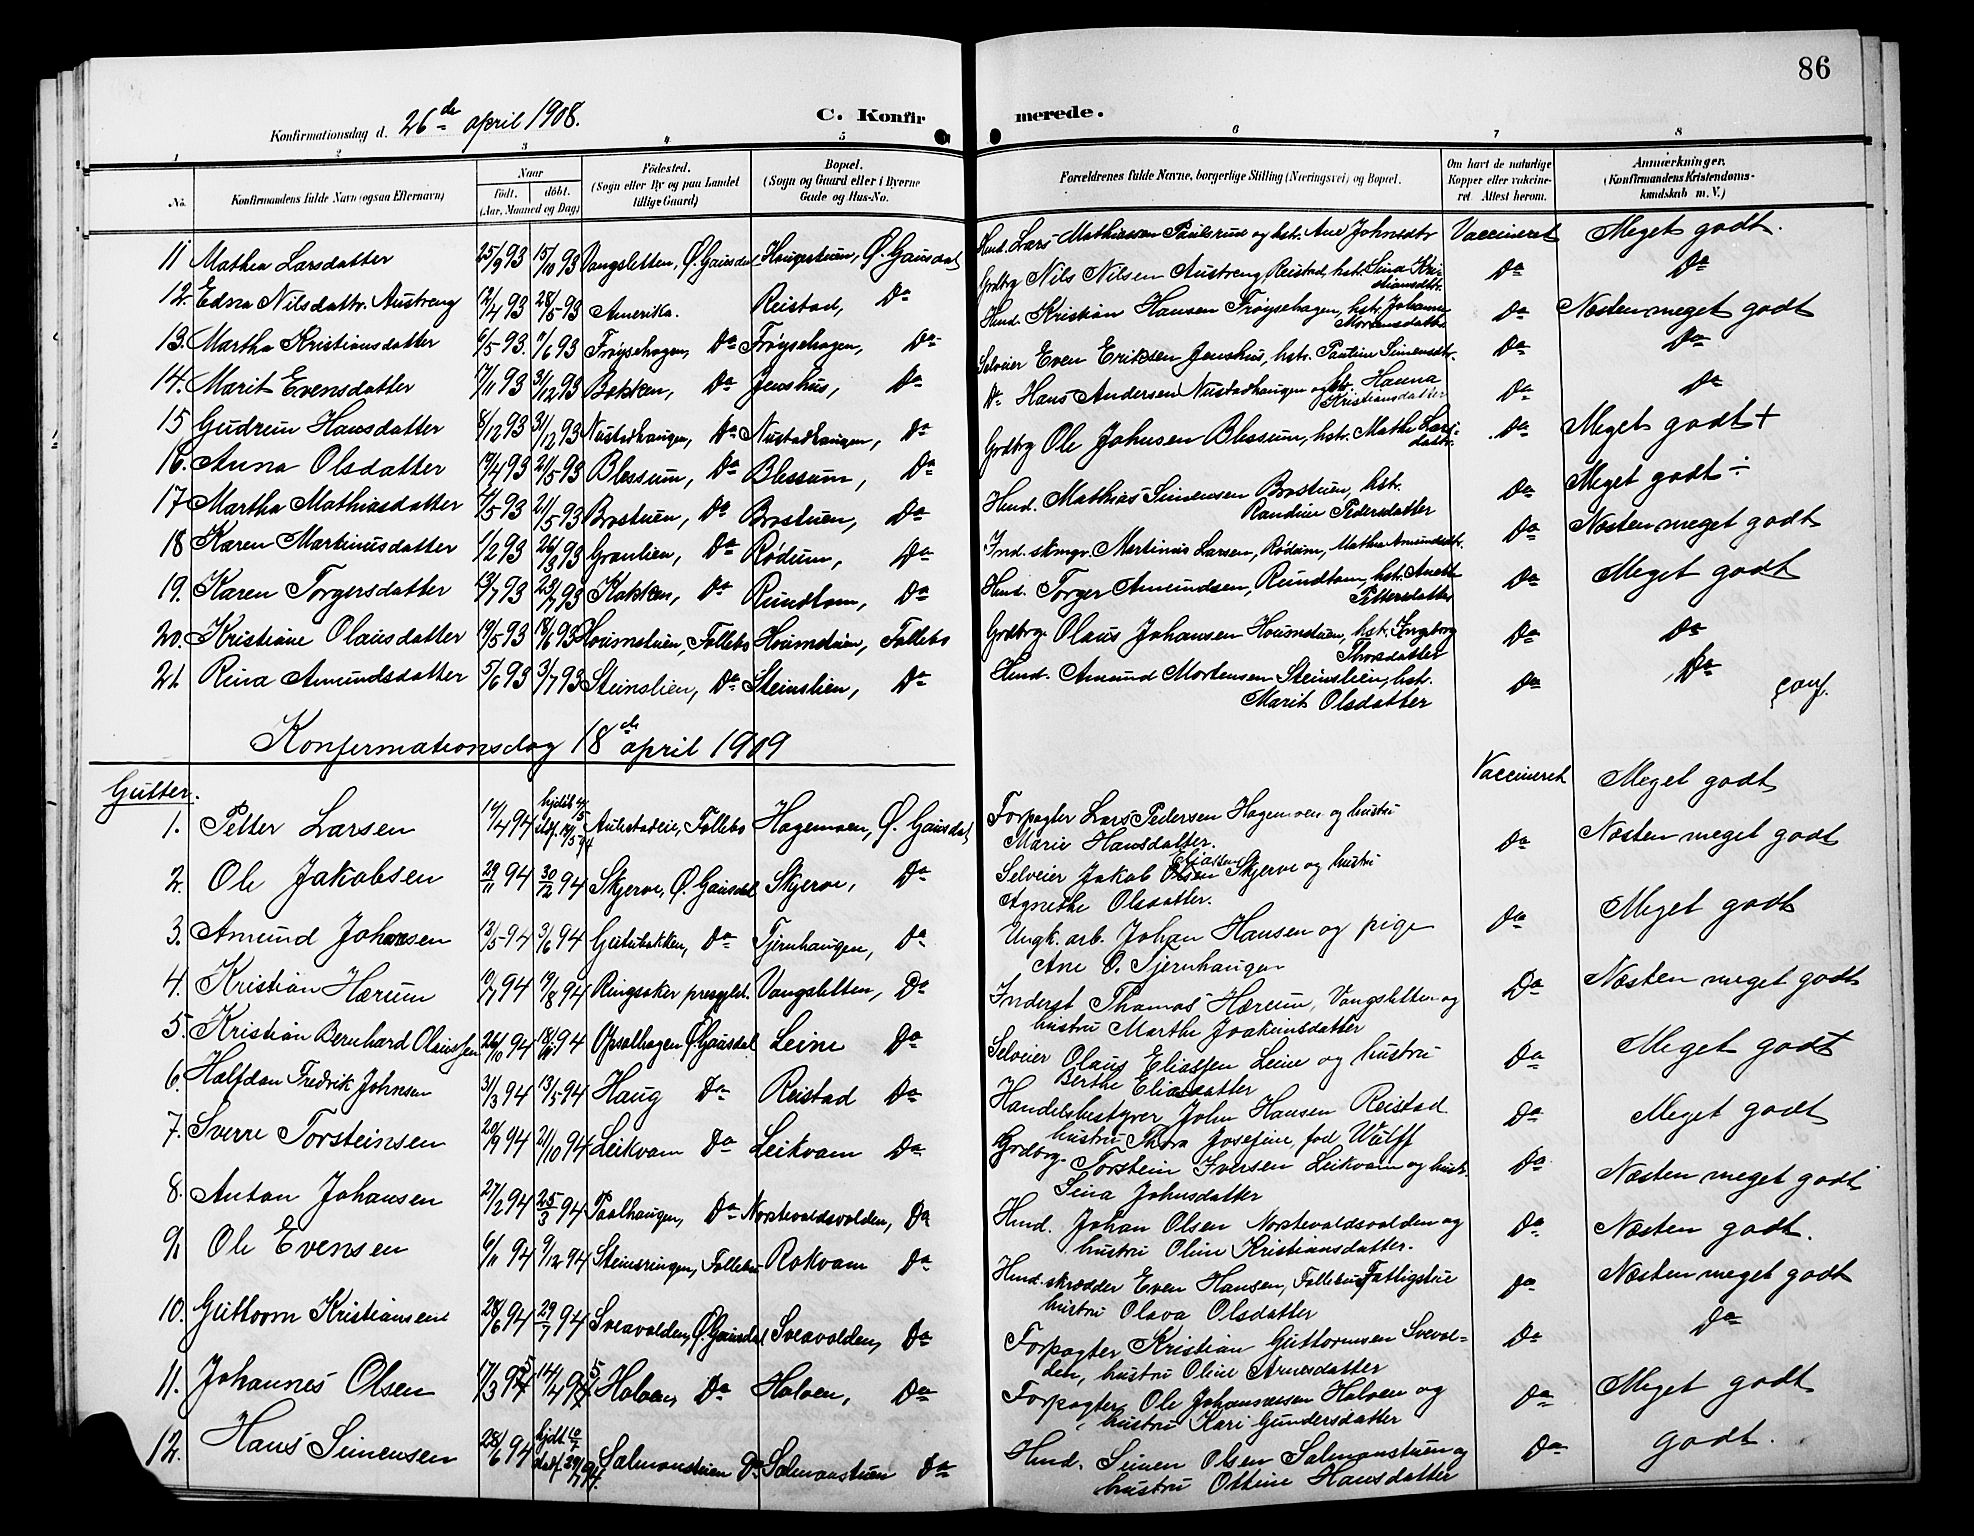 86
Konfirmationsdag d. 26de april 1908.
C. Konfirmerede.
1 2 3 4 5 6 7 8
No. Konfirmandens fulde Navn (ogsaa Efternavn) Naar Født. døbt. (Aar, Maaned og Dag) Fødested. (Sogn eller By og paa Landet tillige Gaard) Bopæl. (Sogn og Gaard eller i Byerne Gade og Hus-No. Forældrenes fulde Navne, borgerlige Stilling (Næringsvei) og Bopæl. Om havt de naturlige Kopper eller vakcineret Attest herom. Anmærkninger. (Konfirmandens Kristendomskundskab m. V.)
11 Mathea Larsdatter 25/9 93 15/10 93 Vangsletten, Ø. Gausdal Haugstuen, Ø. Gausdal Husd. Lars Mathiassen Paulsrud og hst. Ane Johnsdtr Vaccineret Meget godt.
12. Edna Nilsdattr. Austreng 12/4 93 28/5 93 Amerika. Reistad, Do Grdbrg Nils Nilsen Austreng Reistad, hst. Lina Kristiansdtr. Do Do
13. Martha Kristiansdatter 6/5 93. 11/6 93 Frøysehagen, Do Frøysehagen, Do Husd. Kristian Hansen Frøysehagen, hst. Johanne Mortensdatter Do Næsten meget godt
14. Marit Evensdatter 17/11 93 31/12 93 Bakken, Do Jenshus, Do Selveier Even Eriksen Jenshus, hstr. Pauline Simensdtr. Do Do
15 Gudrun Hansdatter 8/12 93 31/12 93 Nustadhaugen, Do Nustadhaugen, Do Do Hans Andersen Nustadhaugen og hst. Hanna Kristiansdatter Do Do
16. Anna Olsdatter 17/4 93 21/5 93 Blessum, Do Blessum, Do Grdbrg Ole Johnsen Blessum, hst. Mathe Larsdattr. Do Meget godt +
17 Martha Mathiasdatter 4/5 93 21/5 93 Brostuen, Do Brostuen, Do Husd. Mathias Simensen Brostuen, hst. Randine Pedersdatter Do Meget godt ÷
18 Karen Martinusdatter 1/2 93 26/3 93 Granlien, Do Rødum, Do Ind. skmgr. Martinus Larsen, Rødum, Mathea Amundsdtr. Do Næsten meget godt
19. Karen Torgersdatter 13/7 93 23/7 93 Kakken, Do Rundtom, Do Husd. Torger Amundsen, Rundtom, hst. Anette Pettersdatter Do Meget godt
20. Kristiane Olausdatter 19/5 93 18/6 93 Houmstuen, Follebo Houmstuen, Follebo Grdbrg. Olaus Johansen Houmstuen, hst. Ingeborg Thorsdatter Do Do
21. Rina Amundsdatter 5/6 93 3/7 93 Steinslien, Do Steinslien, Do Husd. Amund Mortensen Steinslien, hst. Marit Olsdatter Do Do
conf.
Konfirmationsdag 18de april 1909
Gutter.
1. Petter Larsen 14/4 94 hjdøb 4/5 Aulestadeie, Follebo Hagemoen, Ø. Gausdal Forpagter Lars Pedersen Hagemoen og hustru Marie Hansdatter. Vaccineret Meget godt
2. Ole Jakobsen 29/11 94 30/12 94 Skjerve, Ø. Gausdal Skjerve, Do Selveier Jakob Eliassen Skjerve og hustru Agnethe Olsdatter. Do Næsten meget godt
3. Amund Johansen 13/5 94 3/6 94 Gutubakken, Do Tjernhaugen, Do Ungk. arb. Johan Hansen og pige Ane O. Tjernhaugen Do Meget godt
4. Kristian Hærum 10/7 94 19/8 94 Ringsaker presgjld. Vangsletten, Do Inderst Thomas Hærum, Vangsletten og hustru Marthe Joakimsdatter Do Næsten meget godt
5. Kristian Bernhard Olaussen 26/10 94 94 Opsalhagen Ø Gausdal Leine Do Selveier Olaus Eliassen Leine og hustru Berthe Eliasdatter Do Meget godt
6. Halfdan Fredrik Johnsen 31/3 94 13/5 94 Haug Do Reistad Do Handelsbestyrer John Hansen Reistad hustru Thora Josefine, fød Wulff Do Meget godt
7. Sverre Torsteinsen 20/9 94 21/10 94 Leikvam Do Leikvam Do Grdbrg. Torstein Iversen Leikvam og hustr. Lina Johnsdatter Do Næsten meget godt
8. Anton Johansen 27/2 94 25/3 94 Paalhaugen, Do Norstevoldsvolden, Do Husd. Johan Olsen Norstevoldsvolden og hustru Oline Kristiansdatter. Do Næsten godt.
9. Ole Evensen 6/11 94 9/12 94 Steinsringen, Follebu Rokvam Do Husd. skrædder Even Hansen, Follebu Fattigstue hustru Olava Olsdatter Do Næsten meget godt
10. Guttorm Kristiansen 28/6 94 29/7 94 Sveavolden, Ø. Gausdal Sveavolden, Do Forpagter Kristian Guttormsen Svevolden, hustru Oline Arnesdatter Do Do
11. Johannes Olsen 17/3 95 14/4 95 Holoen, Do Holoen, Do Forpagter Ole Johannessen Holoen og hustru Kari Gundersdatter Do Meget godt
12. Hans Simensen 28/6 94 hjdt 10/7 stadf. 29/7 94. Salmonstuen Do Salmonstuen Do Husd. Simen Olsen Salmonstuen og hustru Ottine Hansdatter Do godt.